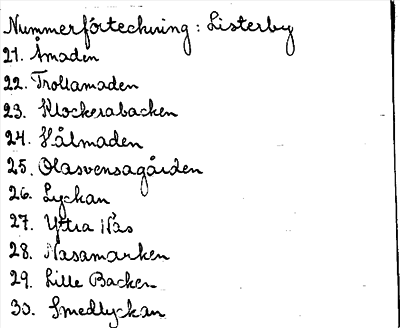 Nummerförteckning: Listerby
21. Åmaden
22. Trollamaden
23. Klockerabacken
24. Hålmaden
25. Olasvensagården
26. Lyckan
27. Yttra Näs
28. Nasamarken
29. Lille Backen
30. Smedlyckan